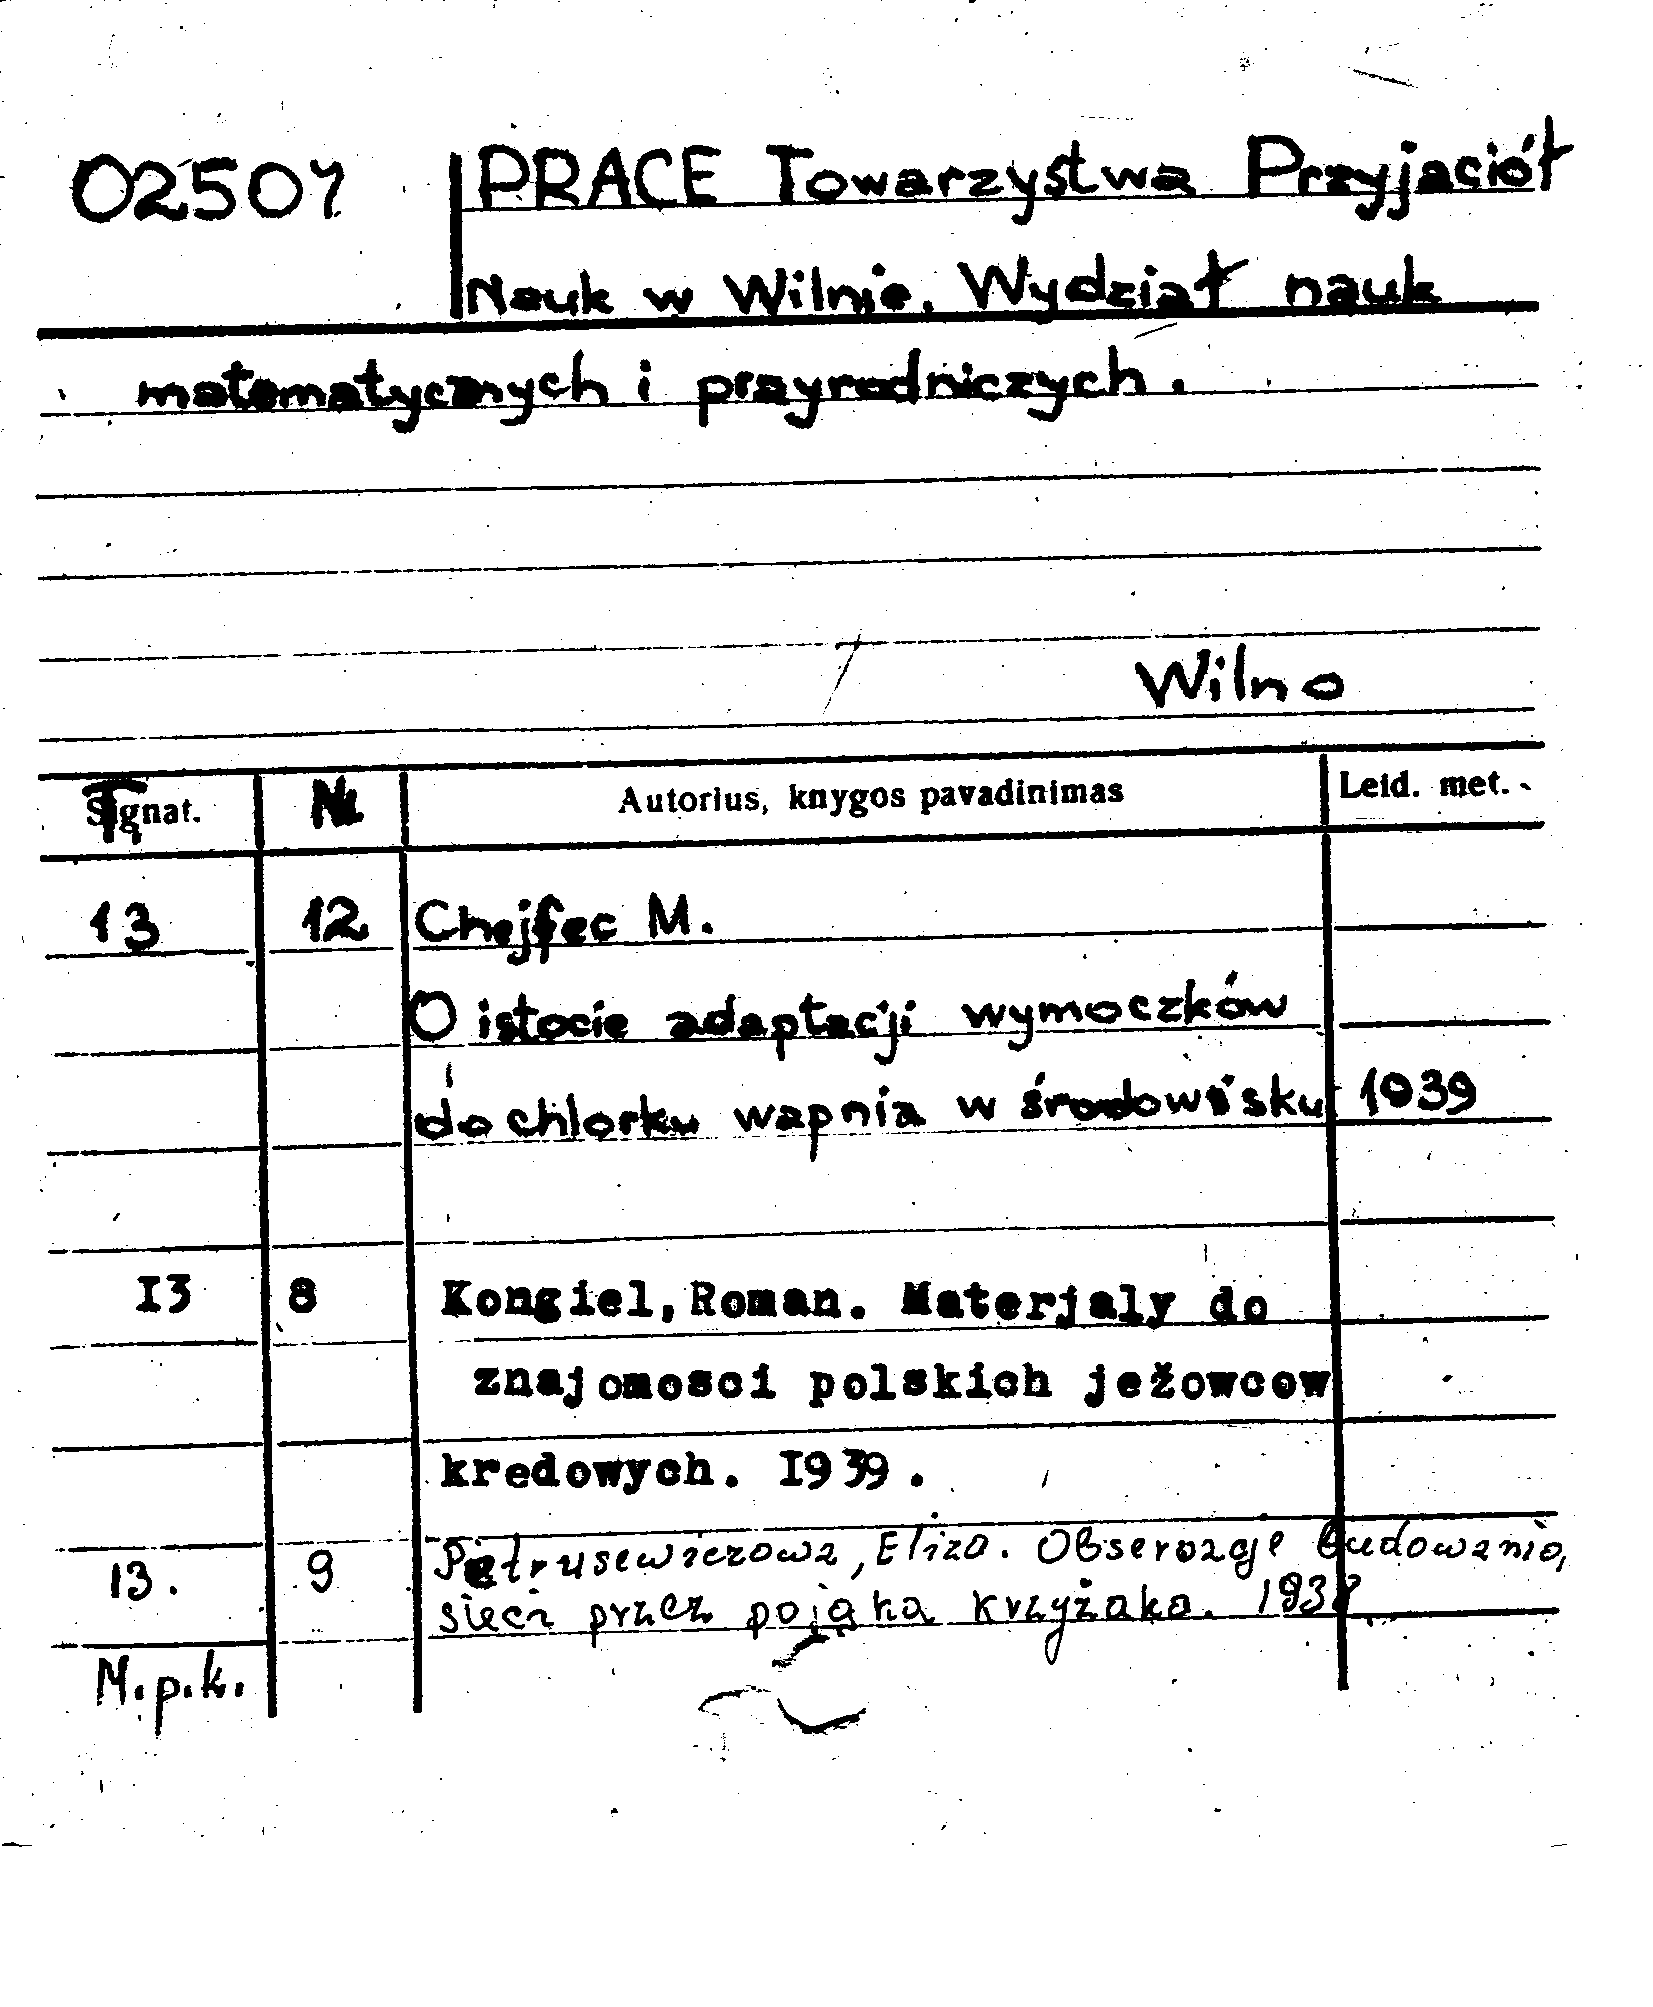 02507 PRACE Towarzystwa Przyjaciół
Nauk w Wilnie. Wydział nauk
matematycznych i przyrodniczych.
Wilno
T. Nr. Autorius, knygos pavadinimas Leid. met.
13 12 Chejfec M.
O istocie adaptacji wymoczków
do chlorku wapnia w środowisku 1939
I3 8 Kongiel, Roman. Materjaly do
znajomosci polskich jeżowcow
kredowych. I939.
13. 9 Pietrusewiczowa, Eliza. Obserwacje budowania,
sieci przez pająka krzyżaka. 1938
M.p.k.